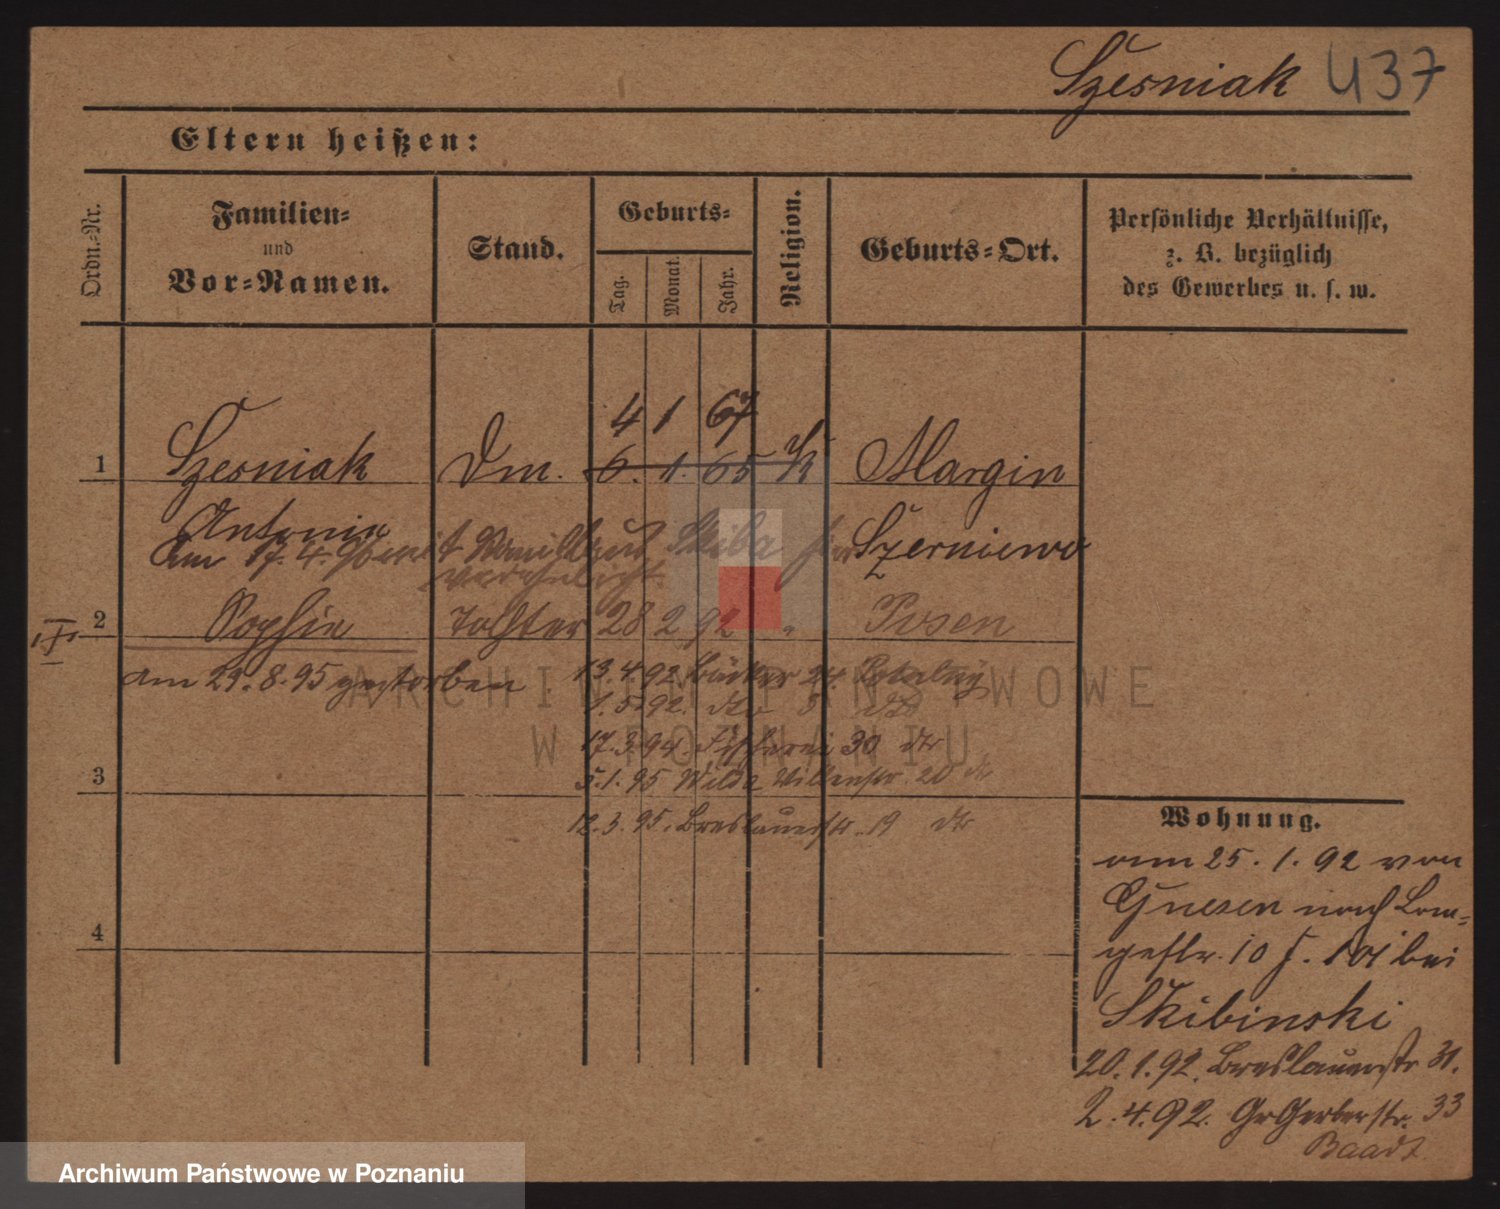 Szesniak 437
Eltern heißen:
Ordn.-Nr.
Familien-
und
Vor-Namen.
Stand.
Geburts-
Tag.
Monat.
Jahr.
Religion.
Geburts-Ort.
Persönliche Verhältnisse,
z. B. bezüglich
des Gewerbes u. s. w.
4 1 67
1 Szesniak Dm. 6. 1. 65 K Margin
Antonie Szerniewo
am 17. 4. 96 mit Skiba
verehelicht
2 Sophie Tochter 28 2 92 " Posen
am 29. 8. 95 gestorben
13. 4. 92 24.
1. 5. 92. dto 3
17. 3. 94. Fischerei 30 dto
3 5. 1. 95 Wilda Villenstr. 20 dto
12. 3. 95. Breslauerstr. 19 dto
4
Wohnung.
am 25. 1. 92 von
Gnesen nach Lan-
gestr. 10 bei
Skibinski
20. 1. 92. Breslauerstr 31.
2. 4. 92. Gr Gerberstr. 33
Baadt
ARCHIWUM PAŃSTWOWE
W POZNANIU
Archiwum Państwowe w Poznaniu